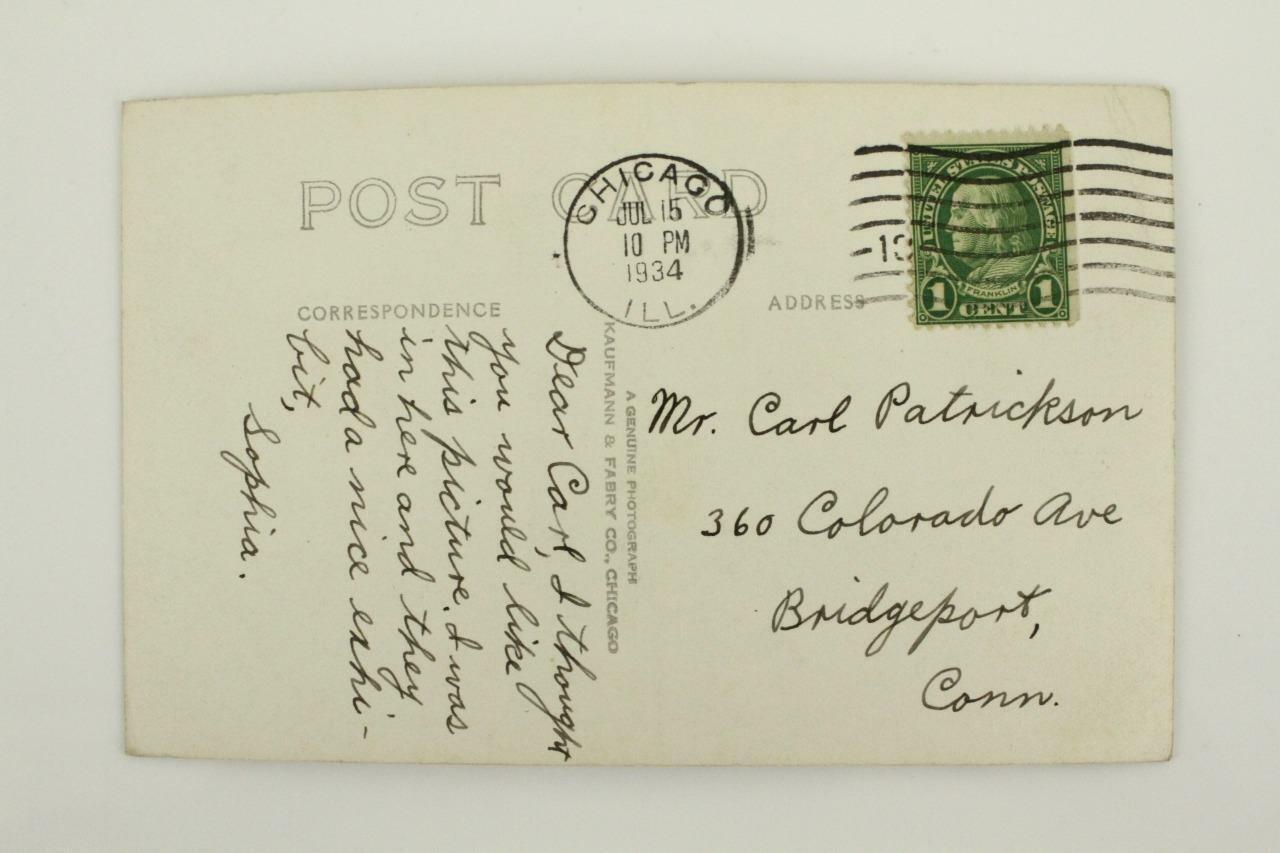 POST CARD
CHICAGO
JUL 15
10 PM
1934
ILL.
UNITED STATES POSTAGE
FRANKLIN
1 CENT 1
CORRESPONDENCE
ADDRESS
Dear Carl, I thought
you would like
this picture. I was
in here and they
had a nice exhi-
bit,
Sophia.
A GENUINE PHOTOGRAPH
KAUFMANN & FABRY CO., CHICAGO
Mr. Carl Patrickson
360 Colorado Ave
Bridgeport,
Conn.